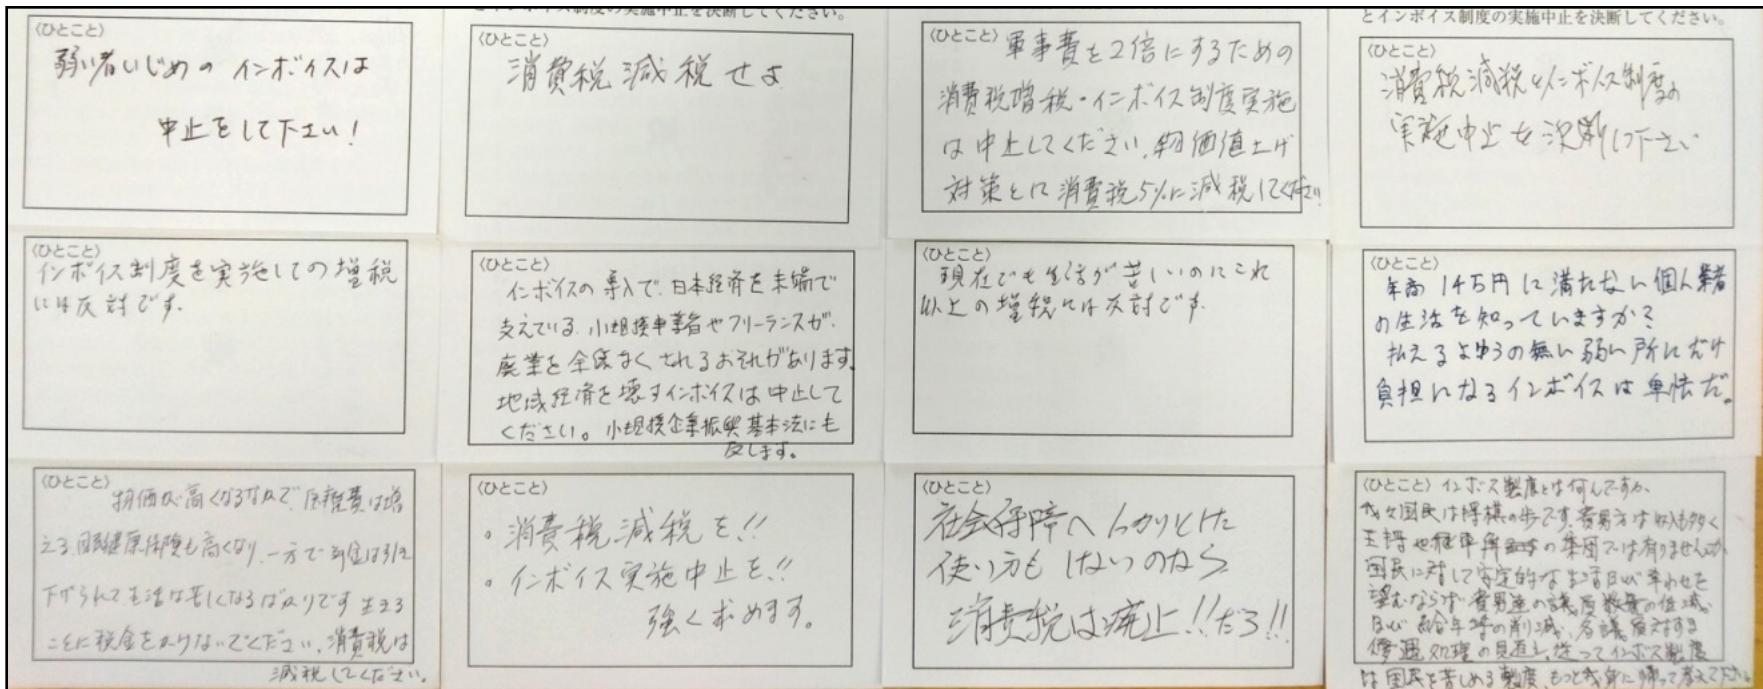 〈ひとこと〉
弱い者いじめの インボイスは
中止をして下さい!
とインボイス制度の実施中止を決断してください。
〈ひとこと〉
消費税減税せよ
〈ひとこと〉 軍事費を2倍にするための
消費税増税・インボイス制度実施
は中止してください。物価値上げ
対策として消費税5%に減税してください
とインボイス制度の実施中止を決断してください。
〈ひとこと〉
消費税減税とインボイス制度の
実施中止を決断して下さい
〈ひとこと〉
インボイス制度を実施しての増税
には反対です。
〈ひとこと〉
インボイスの導入で、日本経済を末端で
支えている 小規模事業者やフリーランスが、
廃業を余儀なくされるおそれがあります。
地域経済を壊すインボイスは中止して
ください。小規模企業振興基本法にも
反します。
〈ひとこと〉
現在でも生活が苦しいのにこれ
以上の増税には反対です。
〈ひとこと〉
年商 1千万円に満たない個人業者
の生活を知っていますか?
払えるよゆうの無い弱い所にだけ
負担になるインボイスは卑怯だ。
〈ひとこと〉
物価が高くなるなかで、医療費は増
える、国民健康保険も高くなり、一方で年金は引き
下げられて生活は苦しくなるばかりです 生きる
ことに税金をかけないでください。消費税は
減税してください。
〈ひとこと〉
・消費税減税を!!
・インボイス実施中止を!!
強く求めます。
〈ひとこと〉
社会保障へしっかりとした
使い方もしないのなら
消費税は廃止!!だろ!!
〈ひとこと〉 インボイス制度とは何んですか、
我々国民は将棋の歩です。貴男方は収入も多く
王将や の集団では有りませんか
国民に対して安定的な生活及び幸わせを
望むならず 貴男達の議員報酬の低減
及び の削減、各議員に対する
優遇処理の見直し、従ってインボイス制度
は国民を苦しめる制度、もっと我身に帰って考えて下さい